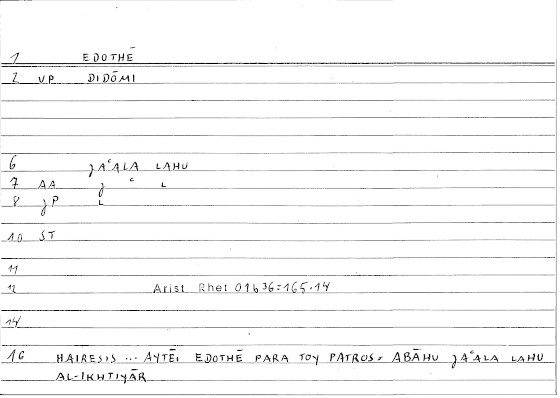 1 EDOTHĒ
2 VP DIDŌMI
6 ʒAʿALA LAHU
7 AA ʒ ʿ L
8 ʒP L
10 ST
11
12 Arist Rhet 01b36=165.14
14
16 HAIRESIS ... AYTĒI EDOTHĒ PARA TOY PATROS = ABĀHU ʒAʿALA LAHU
AL-IKHTIYĀR